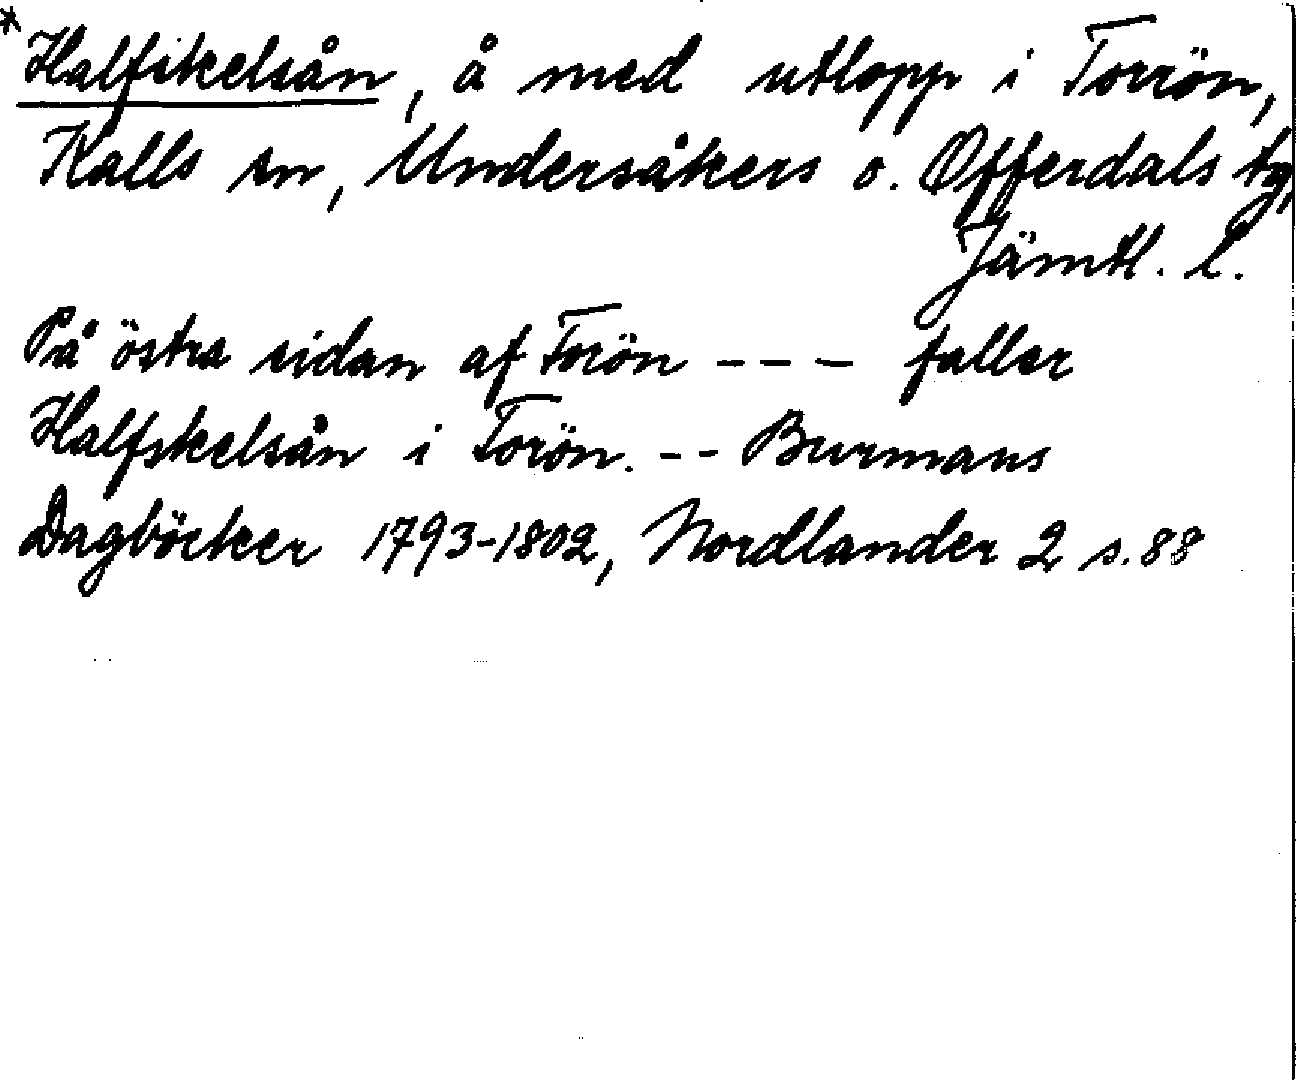 * Halfskelsån, å med utlopp i Torrön,
Kalls sn, Undersåkers o. Offerdals tg,
Jämtl. l.
På östra sidan af Torön --- faller
Halfskelsån i Torön. -- Burmans
Dagböcker 1793-1802, Nordlander 2 s. 88